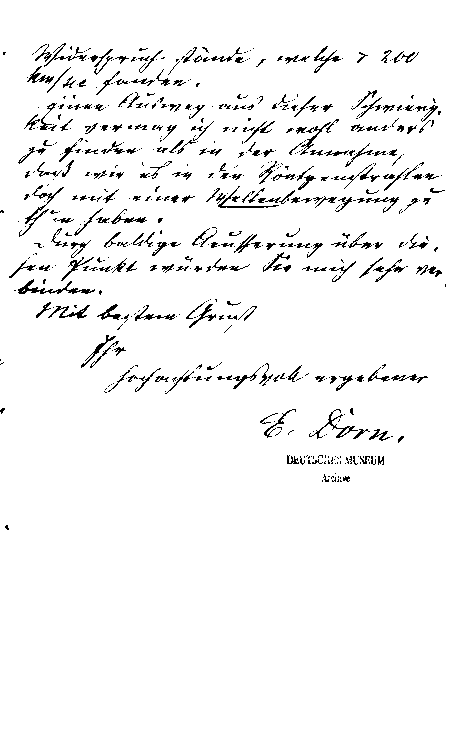 Widerspruch stände, welche > 200
km/sec fanden.
Einen Ausweg aus dieser Schwierig-
keit vermag ich nicht wohl anders
zu finden als in der Annahme,
daß wir es in den Röntgenstrahlen
doch mit einer Wellenbewegung zu
thun haben.
Durch baldige Aeusserung über die-
sen Punkt würden Sie mich sehr ver
binden.
Mit bestem Gruß
Ihr
hochachtungsvoll ergebener
E. Dorn.
DEUTSCHES MUSEUM
Archive